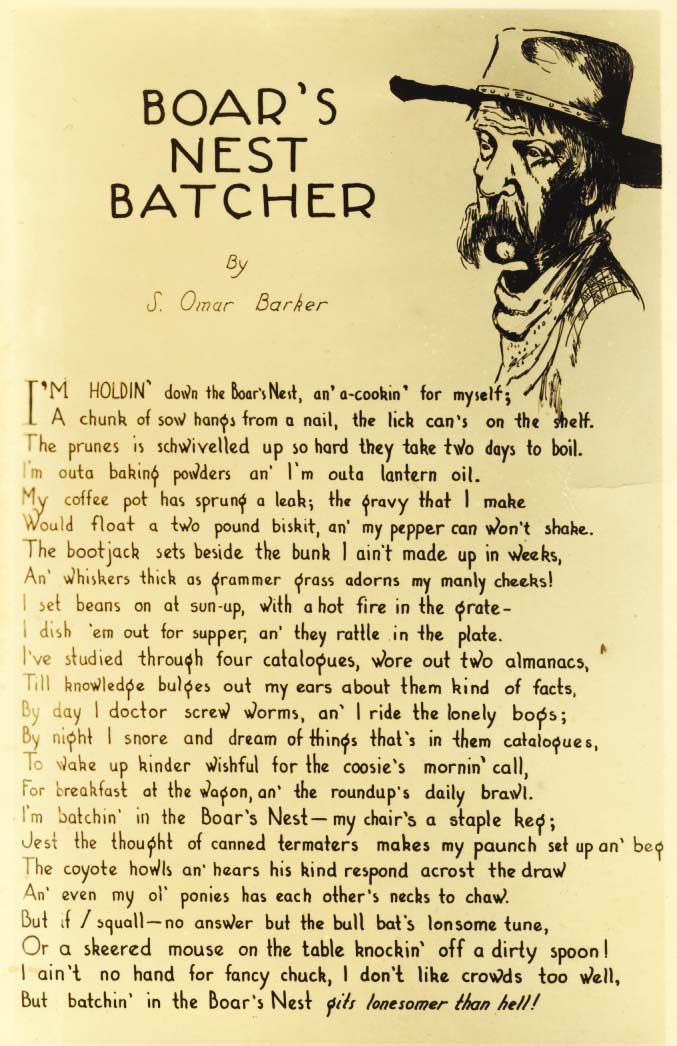 BOAR'S
NEST
BATCHER
By
S. Omar Barker
I'M HOLDIN' down the Boar's Nest, an' a-cookin' for myself;
A chunk of sow hangs from a nail, the lick can's on the shelf.
The prunes is schwivelled up so hard they take two days to boil.
I'm outa baking powders an' I'm outa lantern oil.
My coffee pot has sprung a leak; the gravy that I make
Would float a two pound biskit, an' my pepper can won't shake.
The bootjack sets beside the bunk I ain't made up in weeks,
An' whiskers thick as grammer grass adorns my manly cheeks!
I set beans on at sun-up, with a hot fire in the grate-
I dish 'em out for supper, an' they rattle in the plate.
I've studied through four catalogues, wore out two almanacs,
Till knowledge bulges out my ears about them kind of facts,
By day I doctor screw worms, an' I ride the lonely bogs;
By night I snore and dream of things that's in them catalogues,
To wake up kinder wishful for the coosie's mornin' call,
For breakfast at the wagon, an' the roundup's daily brawl.
I'm batchin' in the Boar's Nest—my chair's a staple keg;
Jest the thought of canned termaters makes my paunch set up an' beg
The coyote howls an' hears his kind respond acrost the draw
An' even my ol' ponies has each other's necks to chaw.
But if I squall—no answer but the bull bat's lonsome tune,
Or a skeered mouse on the table knockin' off a dirty spoon!
I ain't no hand for fancy chuck, I don't like crowds too well,
But batchin' in the Boar's Nest gits lonesomer than hell!